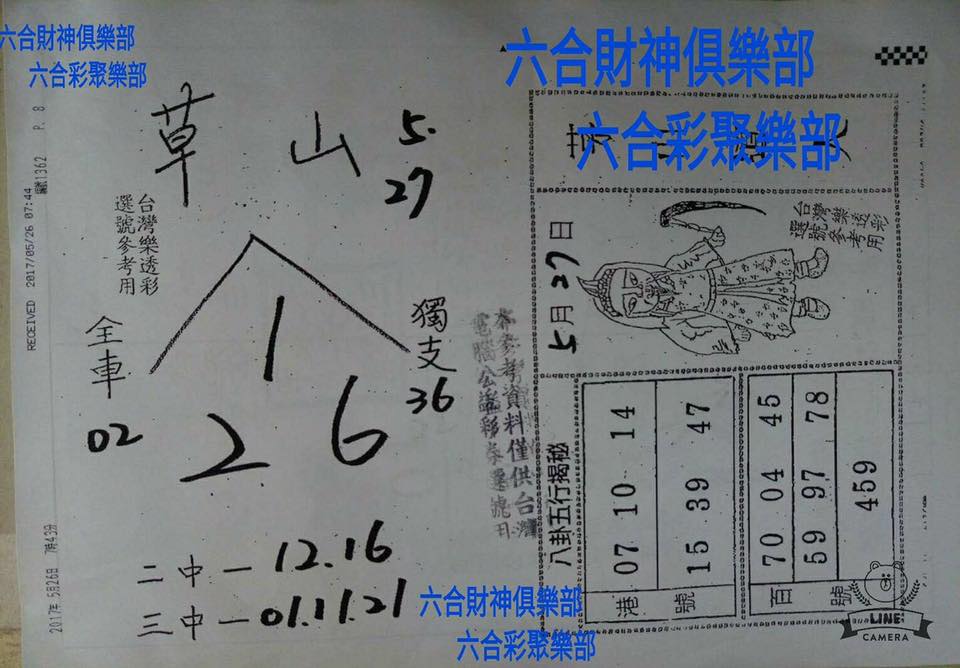 六合財神俱樂部
六合彩聚樂部
P. 8
1362
RECEIVED 2017/05/26 07:44
2017年 5月26日 7時43分
草山 5.
27
台灣樂透彩
選號參考用
全車
02
獨支
36
1
2 6
二中一 12.16
三中一 01.11.21
本參考資料僅供台灣
電腦公益彩券選號用
六合財神俱樂部
六合彩聚樂部
5月27日
台灣樂透彩
選號參考用
八卦五行揭秘
港號
07 10 14
15 39 47
百號
70 04 45
59 97 78
459
六合財神俱樂部
六合彩聚樂部
LINE
CAMERA